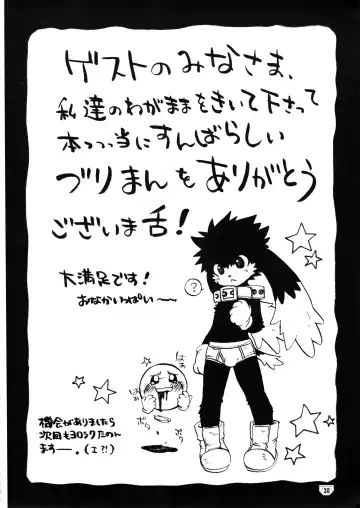 ゲストのみなさま、
私達のわがままをきいて下さって
本っっっ当にすんばらしい
ブリまんをありがとう
ございま舌!
大満足です!
おなかいっぱい〜〜
?
ぱぁ
ぱぁ
ぷら
ぷら
機会がありましたら
次回もヨロシクたのん
ますー。(エ?!)
38